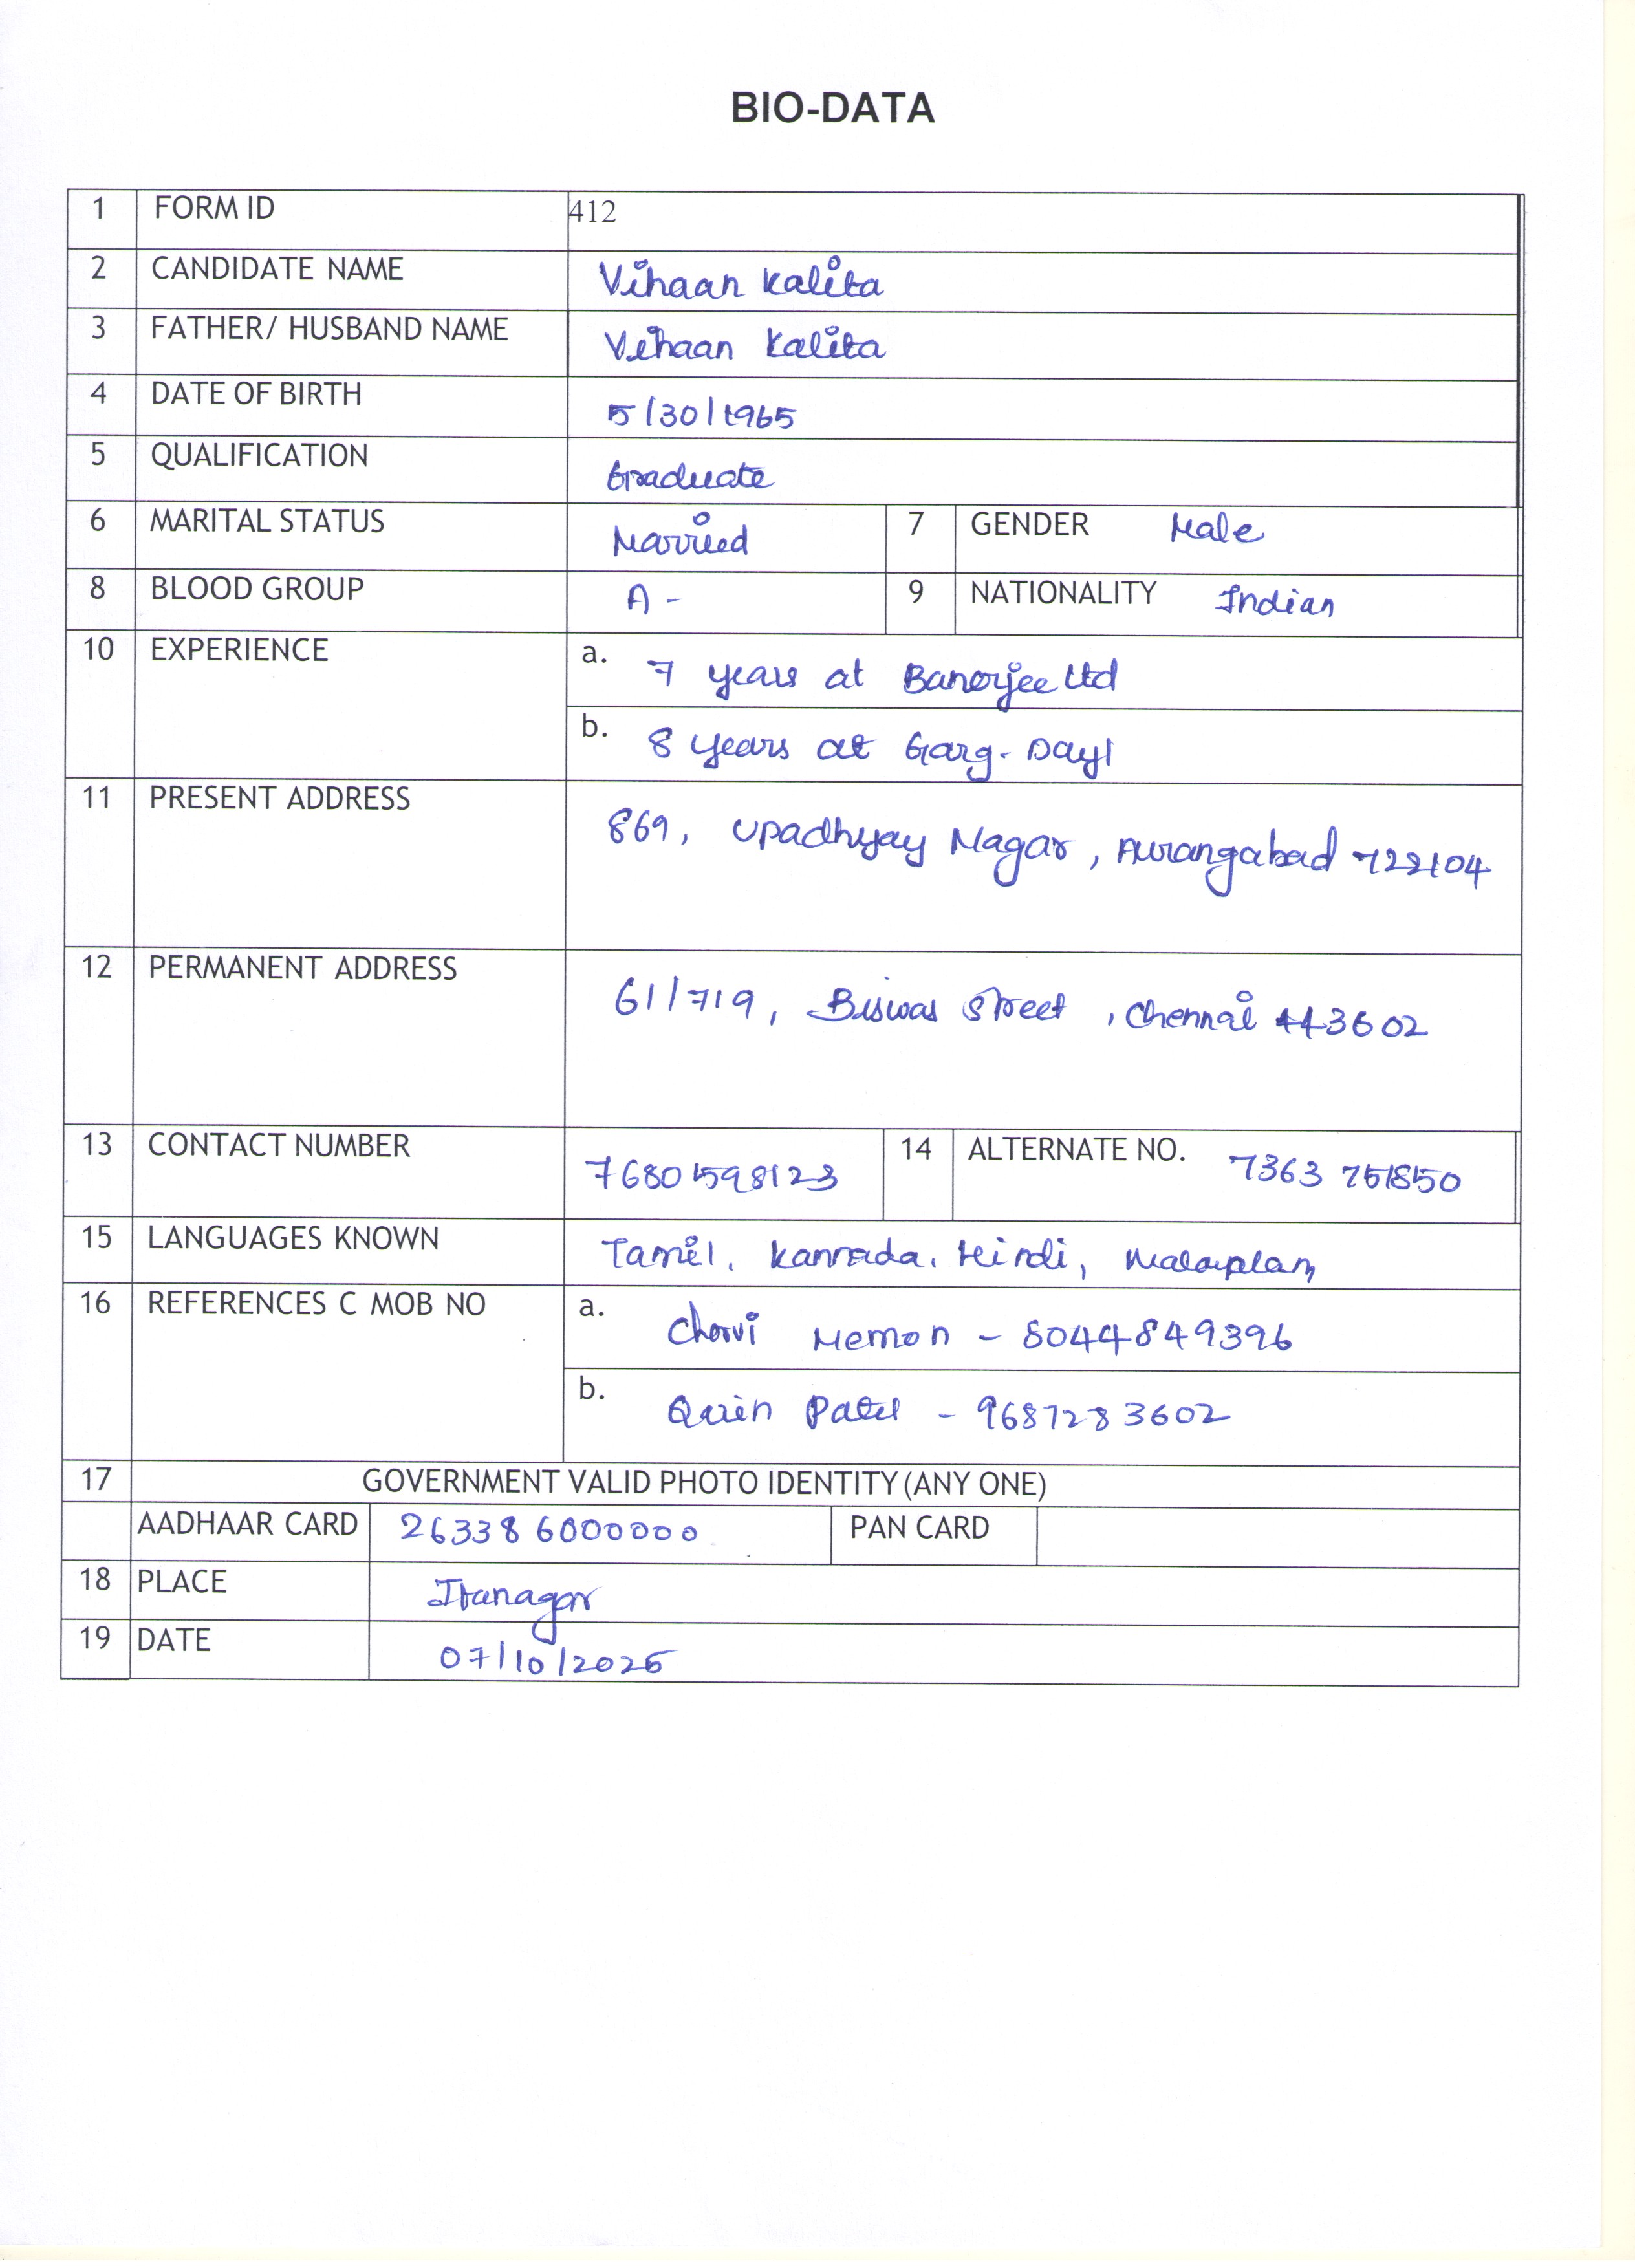 BIO-DATA
1 FORM ID 412
2 CANDIDATE NAME Vihaan Kalita
3 FATHER/ HUSBAND NAME Vihaan Kalita
4 DATE OF BIRTH 5/30/1965
5 QUALIFICATION Graduate
6 MARITAL STATUS Married 7 GENDER Male
8 BLOOD GROUP A- 9 NATIONALITY Indian
10 EXPERIENCE a. 7 years at Banerjee Ltd
b. 8 years at Garg-Dayl
11 PRESENT ADDRESS 869, Upadhyay Nagar, Aurangabad 722104
12 PERMANENT ADDRESS 61/719, Biswas Street, Chennai 443602
13 CONTACT NUMBER 7680598123 14 ALTERNATE NO. 7363751850
15 LANGUAGES KNOWN Tamil, Kannada, Hindi, Malayalam
16 REFERENCES C MOB NO a. Charvi Memon - 8044849396
b. Patel - 9687283602
17 GOVERNMENT VALID PHOTO IDENTITY (ANY ONE)
AADHAAR CARD 263386000000 PAN CARD
18 PLACE Itanagar
19 DATE 07/10/2025